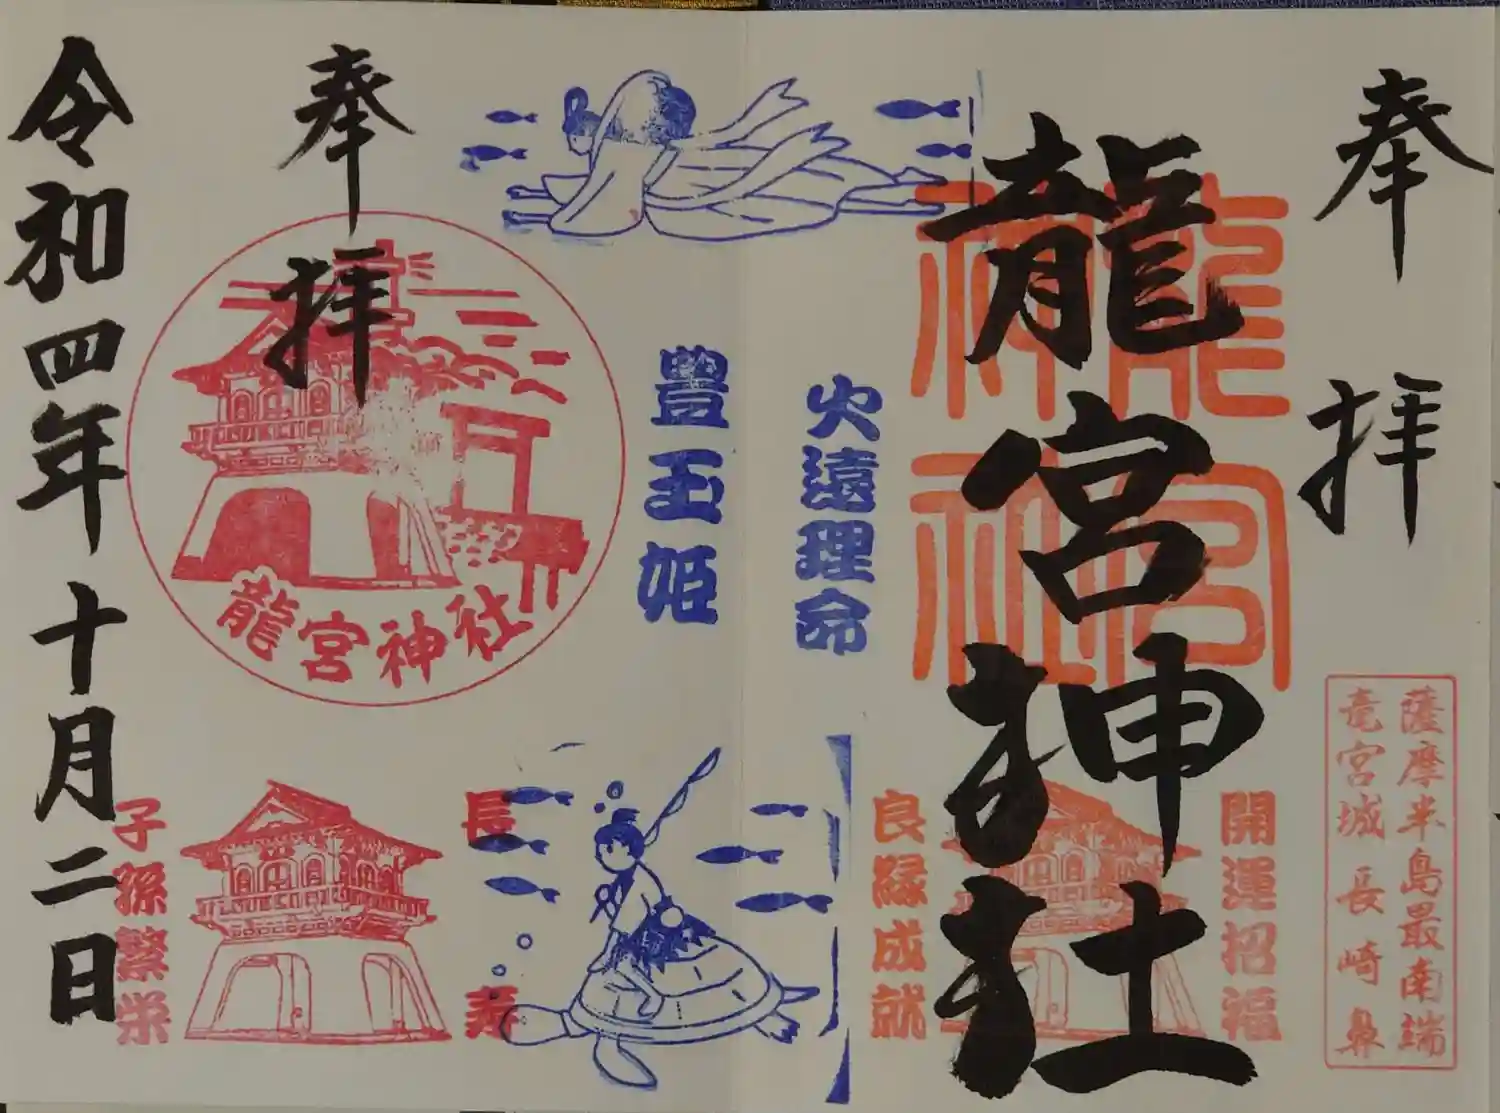 奉拝
龍宮神社
龍宮
神社
薩摩半島最南端
竜宮城長崎鼻
開運招福
良縁成就
火遠理命
豊玉姫
奉拝
龍宮神社
長寿
子孫繁栄
令和四年十月二日